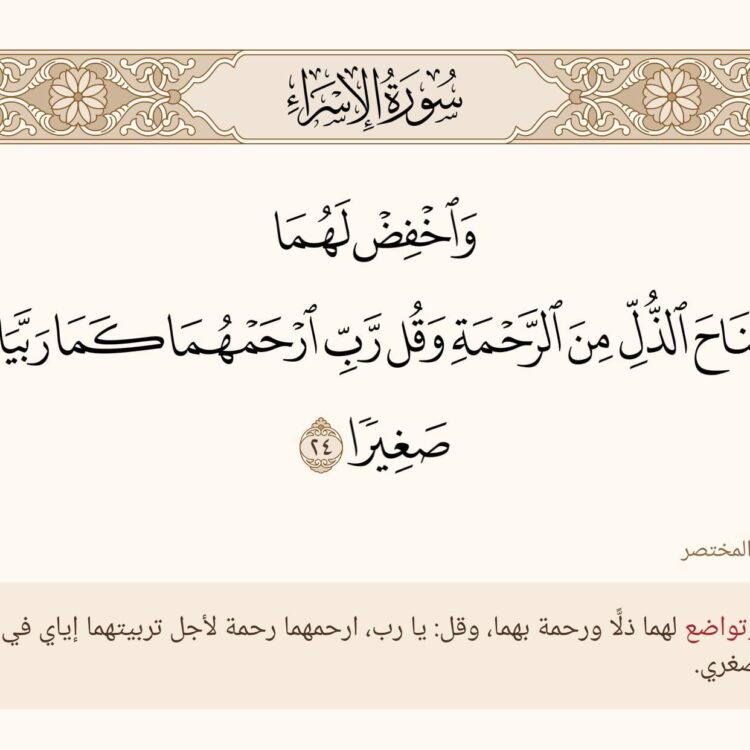 سُورَةُ الإِسْرَاءِ
وَٱخْفِضْ لَهُمَا
ٱلذُّلِّ مِنَ ٱلرَّحْمَةِ وَقُل رَّبِّ ٱرْحَمْهُمَا كَمَا
صَغِيرًا ٢٤
المختصر
لهما ذلًّا ورحمة بهما، وقل: يا رب، ارحمهما رحمة لأجل تربيتهما إياي في